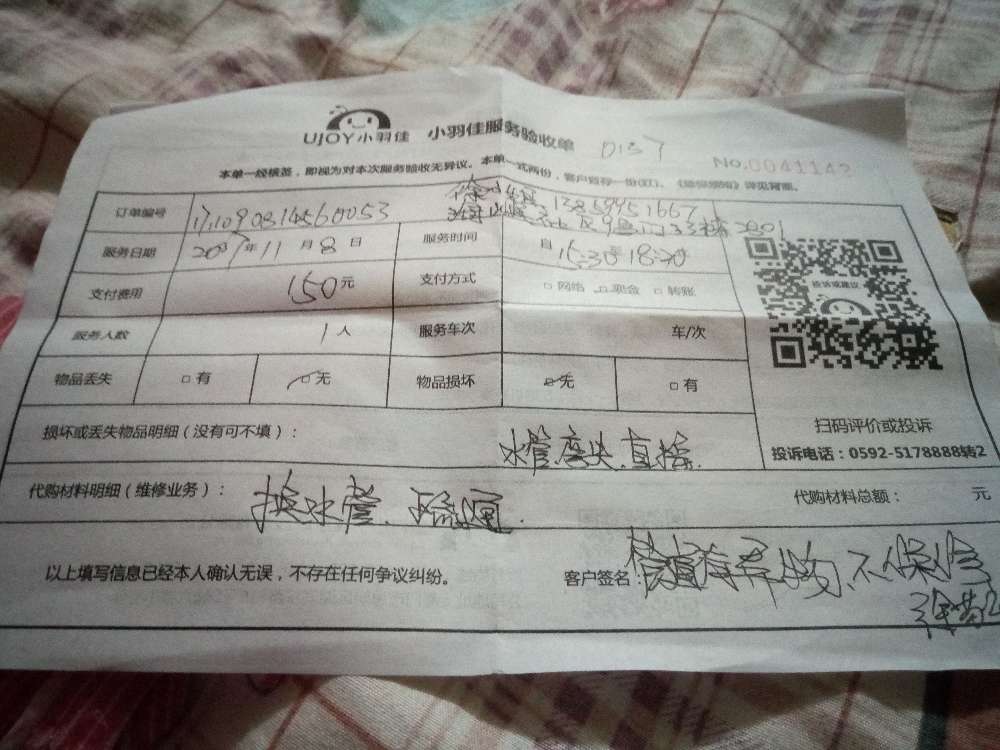 UJOY小羽佳 小羽佳服务验收单
No.0041142
本单一经核签，即视为对本次服务验收无异议。本单一式两份，客户留存一份(红)。
订单编号
13859951667
服务日期 年11月8日 服务时间 自15:30至18:20
支付费用 150元 支付方式 □网络 □现金 □转账
投诉或建议
服务人数 1人 服务车次 车/次
物品丢失 □有 □无 物品损坏 □无 □有
扫码评价或投诉
投诉电话：0592-5178888转2
损坏或丢失物品明细（没有可不填）：
水管.弯头.直接.
代购材料明细（维修业务）： 换水管.疏通. 代购材料总额： 元
以上填写信息已经本人确认无误，不存在任何争议纠纷。 客户签名： 不保修